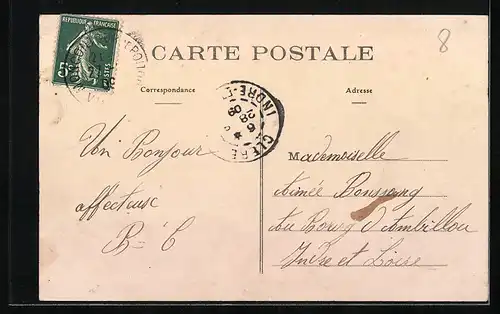 8
RÉPUBLIQUE FRANÇAISE
5c
POSTES
CARTE POSTALE
Correspondance
Adresse
CLÉRÉ
INDRE-ET-
08
Un Bonjour
affectueuse
B= C
Mademoiselle
Aimée
Au Bourg d'Ambillou
Indre et Loire